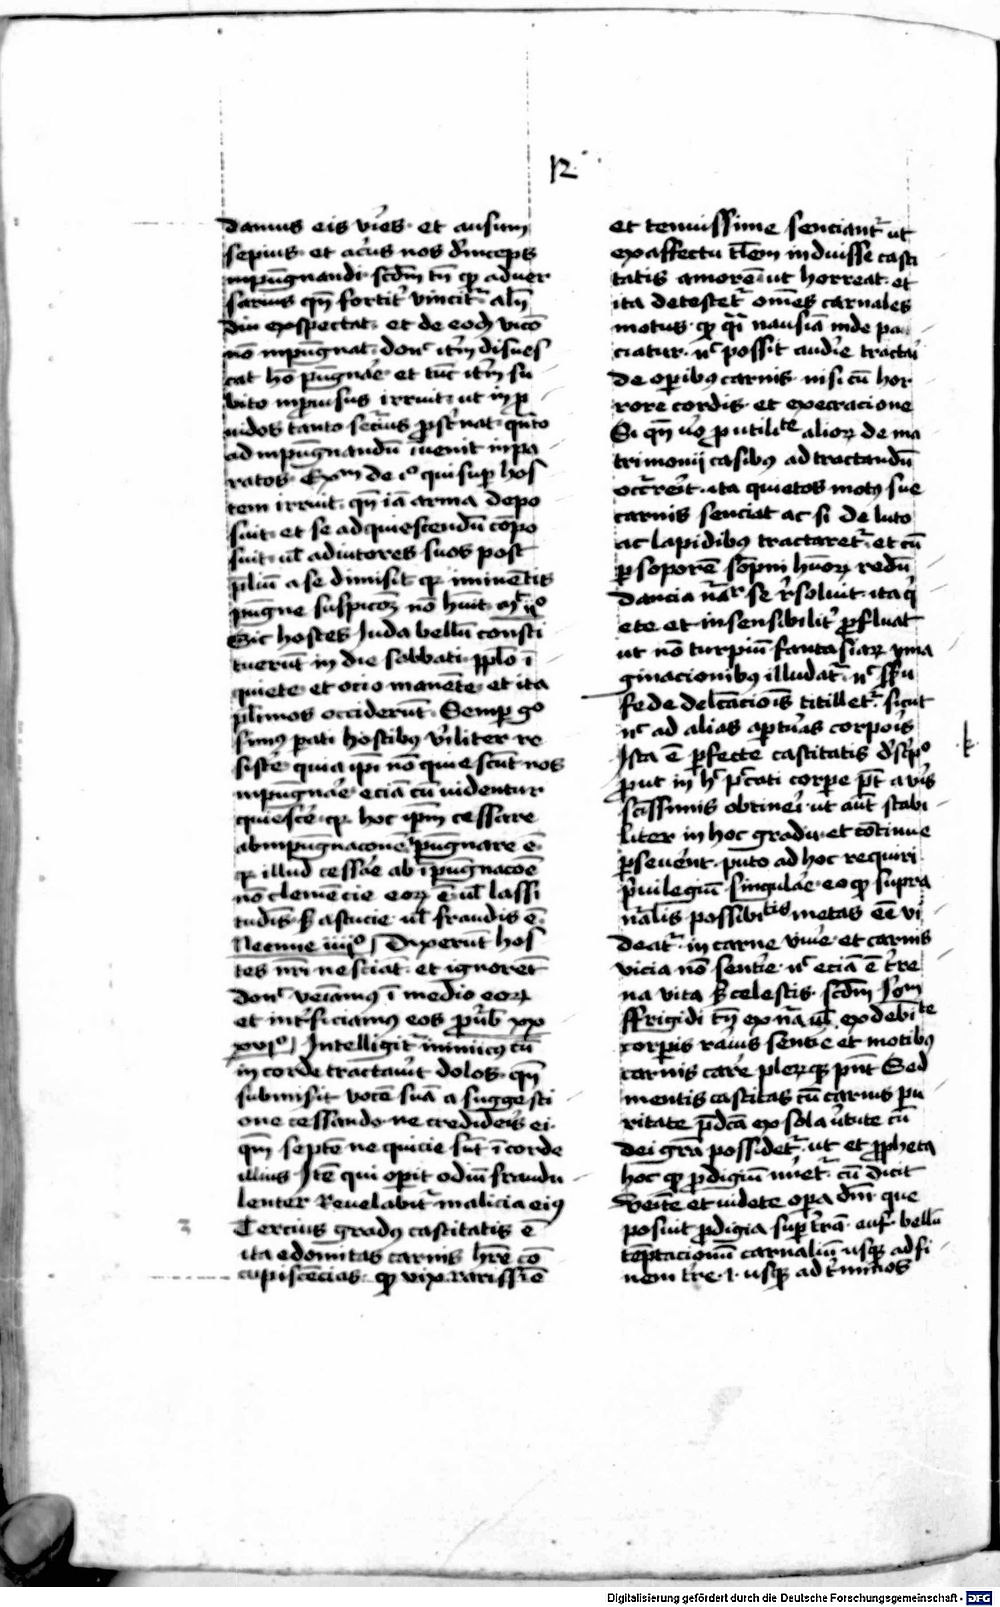 R
damus eis vires et ausum
sepius et acrius nos deinceps
inpūgnandi scdm tn qp adver
sarius qn fortitr vincitr aliqn
diu exspectat et de eodē vicio
nō inpūgnat donc itrm disues
cat hō pūgnare et tūc itrm su
bito inprovisus irruit ut inp
vidos tanto securius prosternat qnto
ad inpūgnandū invenit inpa
ratos Exm de eo qui supr hos
tem irruit qn iā arma depo
suit et se ad quiescendū cōpo
suit ul adiutores suos post
preliū a se dimisit qr iminētis
pugne suspicoēm nō hūit
Sic hostes Iuda bellū consti
tuerūt in die sabbati pplo ī
quiete et ocio manēte et ita
plrimos occiderūt Semper go
simus pati hostibus viriliter re
sistere quia ipi nō quiescūt nos
inpūgnare eciā cū videntur
quiescere qr hoc ipm cessare
ab inpūgnacōne pūgnare ē
qr illud cessare ab īpūgnacōe
nō clemēcie eorz ē ul lassi
tudinis sz astucie ul fraudis ē
Neemie iiijo Dixerūt hos
tes nri nesciāt et ignorēt
donc veniamus ī medio eorz
et intrficiamus eos prvb xx
xvjo Intelligitr inimicus cū
in corde tractaverit dolos qn
submisit vocē suā a suggesti
one cessando ne credideris ei
qm septē nequicie sūt ī corde
illius Itē qui operit odiū fraudu
lenter Revelabitr malicia eius
Tercius gradus castitatis ē
ita edomitas carnis hre cō
cupiscēcias qp vix rarissime
et tenuissime senciantr ut
ex affectu tlem induisse casti
tatis amorē ut horreat et
ita detestetr omēs carnales
motus qp quasi nausiā inde pa
ciatur nc possit audire tractari
de operibus carnis nisi cū hor
rore cordis et execracione
Si qn vero p utilitate aliorz de ma
trimonij casibus ad tractandū
occurrerit ita quietos motus sue
carnis senciat ac si de luto
ac lapidibus tractaretr et cū
per soporē sompni humorz redū
dancia natr se resolvit ita qi
ete et insensibilitr profluat
ut nō turpiū fantasiarz yma
ginacionibus illudatr nc
fede delectacionis titilletr sicut
nc ad alias aperturas corporis
Ista ē perfecte castitatis descripo
prout in hc peccati corpore pt a viris
sctissimis obtineri ut aut stabi
liter in hoc gradu et cōtinue
perseverent puto ad hoc requiri
privilegiū singulare eo qp supra
natralis possibilitatis metas eē vi
deatr in carne vivere et carnis
vicia nō sentire nc eciā ē terre
na vita sz celestis scdm Igm
ffrigidi tn ex nra ul ex debilitate
corporis rarius sentire et motibus
carnis carere plerūqz pnt Sed
mentis castitas cū carnis pu
ritate predca ex sola virtute cū
dei gra possidetr ut et propheta
hoc qp prodigiū miretr cū dicit
Venite et videte opera dni que
posuit prodigia supr terrā auf bellū
teptacionū carnaliū usqz ad fi
nem terre i usqz ad terminos
k
Digitalisierung gefördert durch die Deutsche Forschungsgemeinschaft - DFG